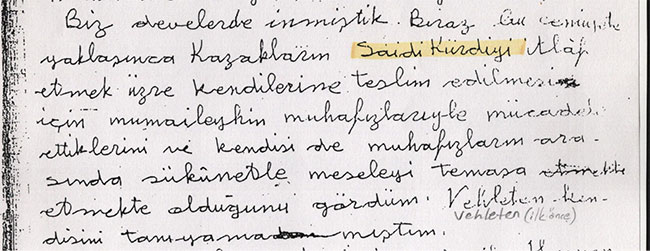 Biz develerde inmiştik. Biraz bu cemiyete
yaklaşınca Kazakların Saidi Kürdiyi itlâf
etmek üzre kendilerine teslim edilmesi
için mumaileyhin muhafızlarıyle mücadele
ettiklerini ve kendisi de muhafızların ara-
sında sükûnetle meseleyi temaşa
etmekte olduğunu gördüm. Vehleten ken-
vehleten (ilk önce)
disini tanıyama mıştım.